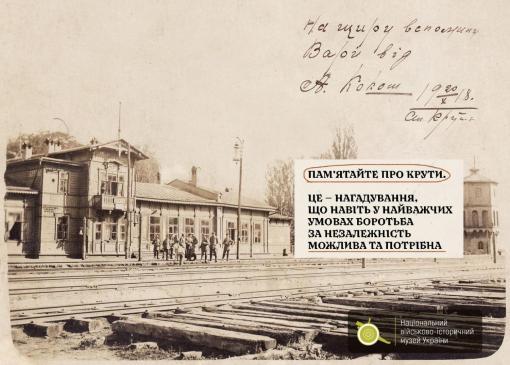 На щиру вспомин
Варй від
А. Кокош
1920/X 18.
ст Крути
ПАМ'ЯТАЙТЕ ПРО КРУТИ.
ЦЕ – НАГАДУВАННЯ,
ЩО НАВІТЬ У НАЙВАЖЧИХ
УМОВАХ БОРОТЬБА
ЗА НЕЗАЛЕЖНІСТЬ
МОЖЛИВА ТА ПОТРІБНА
Національний
військово-історичний
музей України